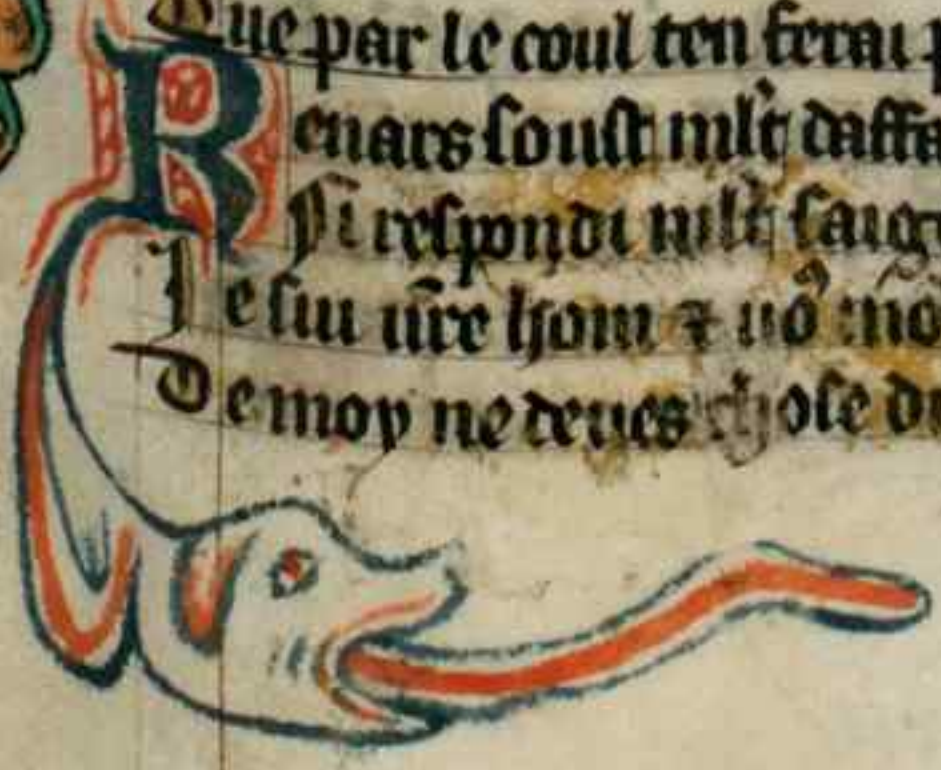 Que par le coul ten ferai p
Renars soust mlt daffa
Si respondi mlt saig
Je sui vre hom & vo mo
De moy ne deues chose de